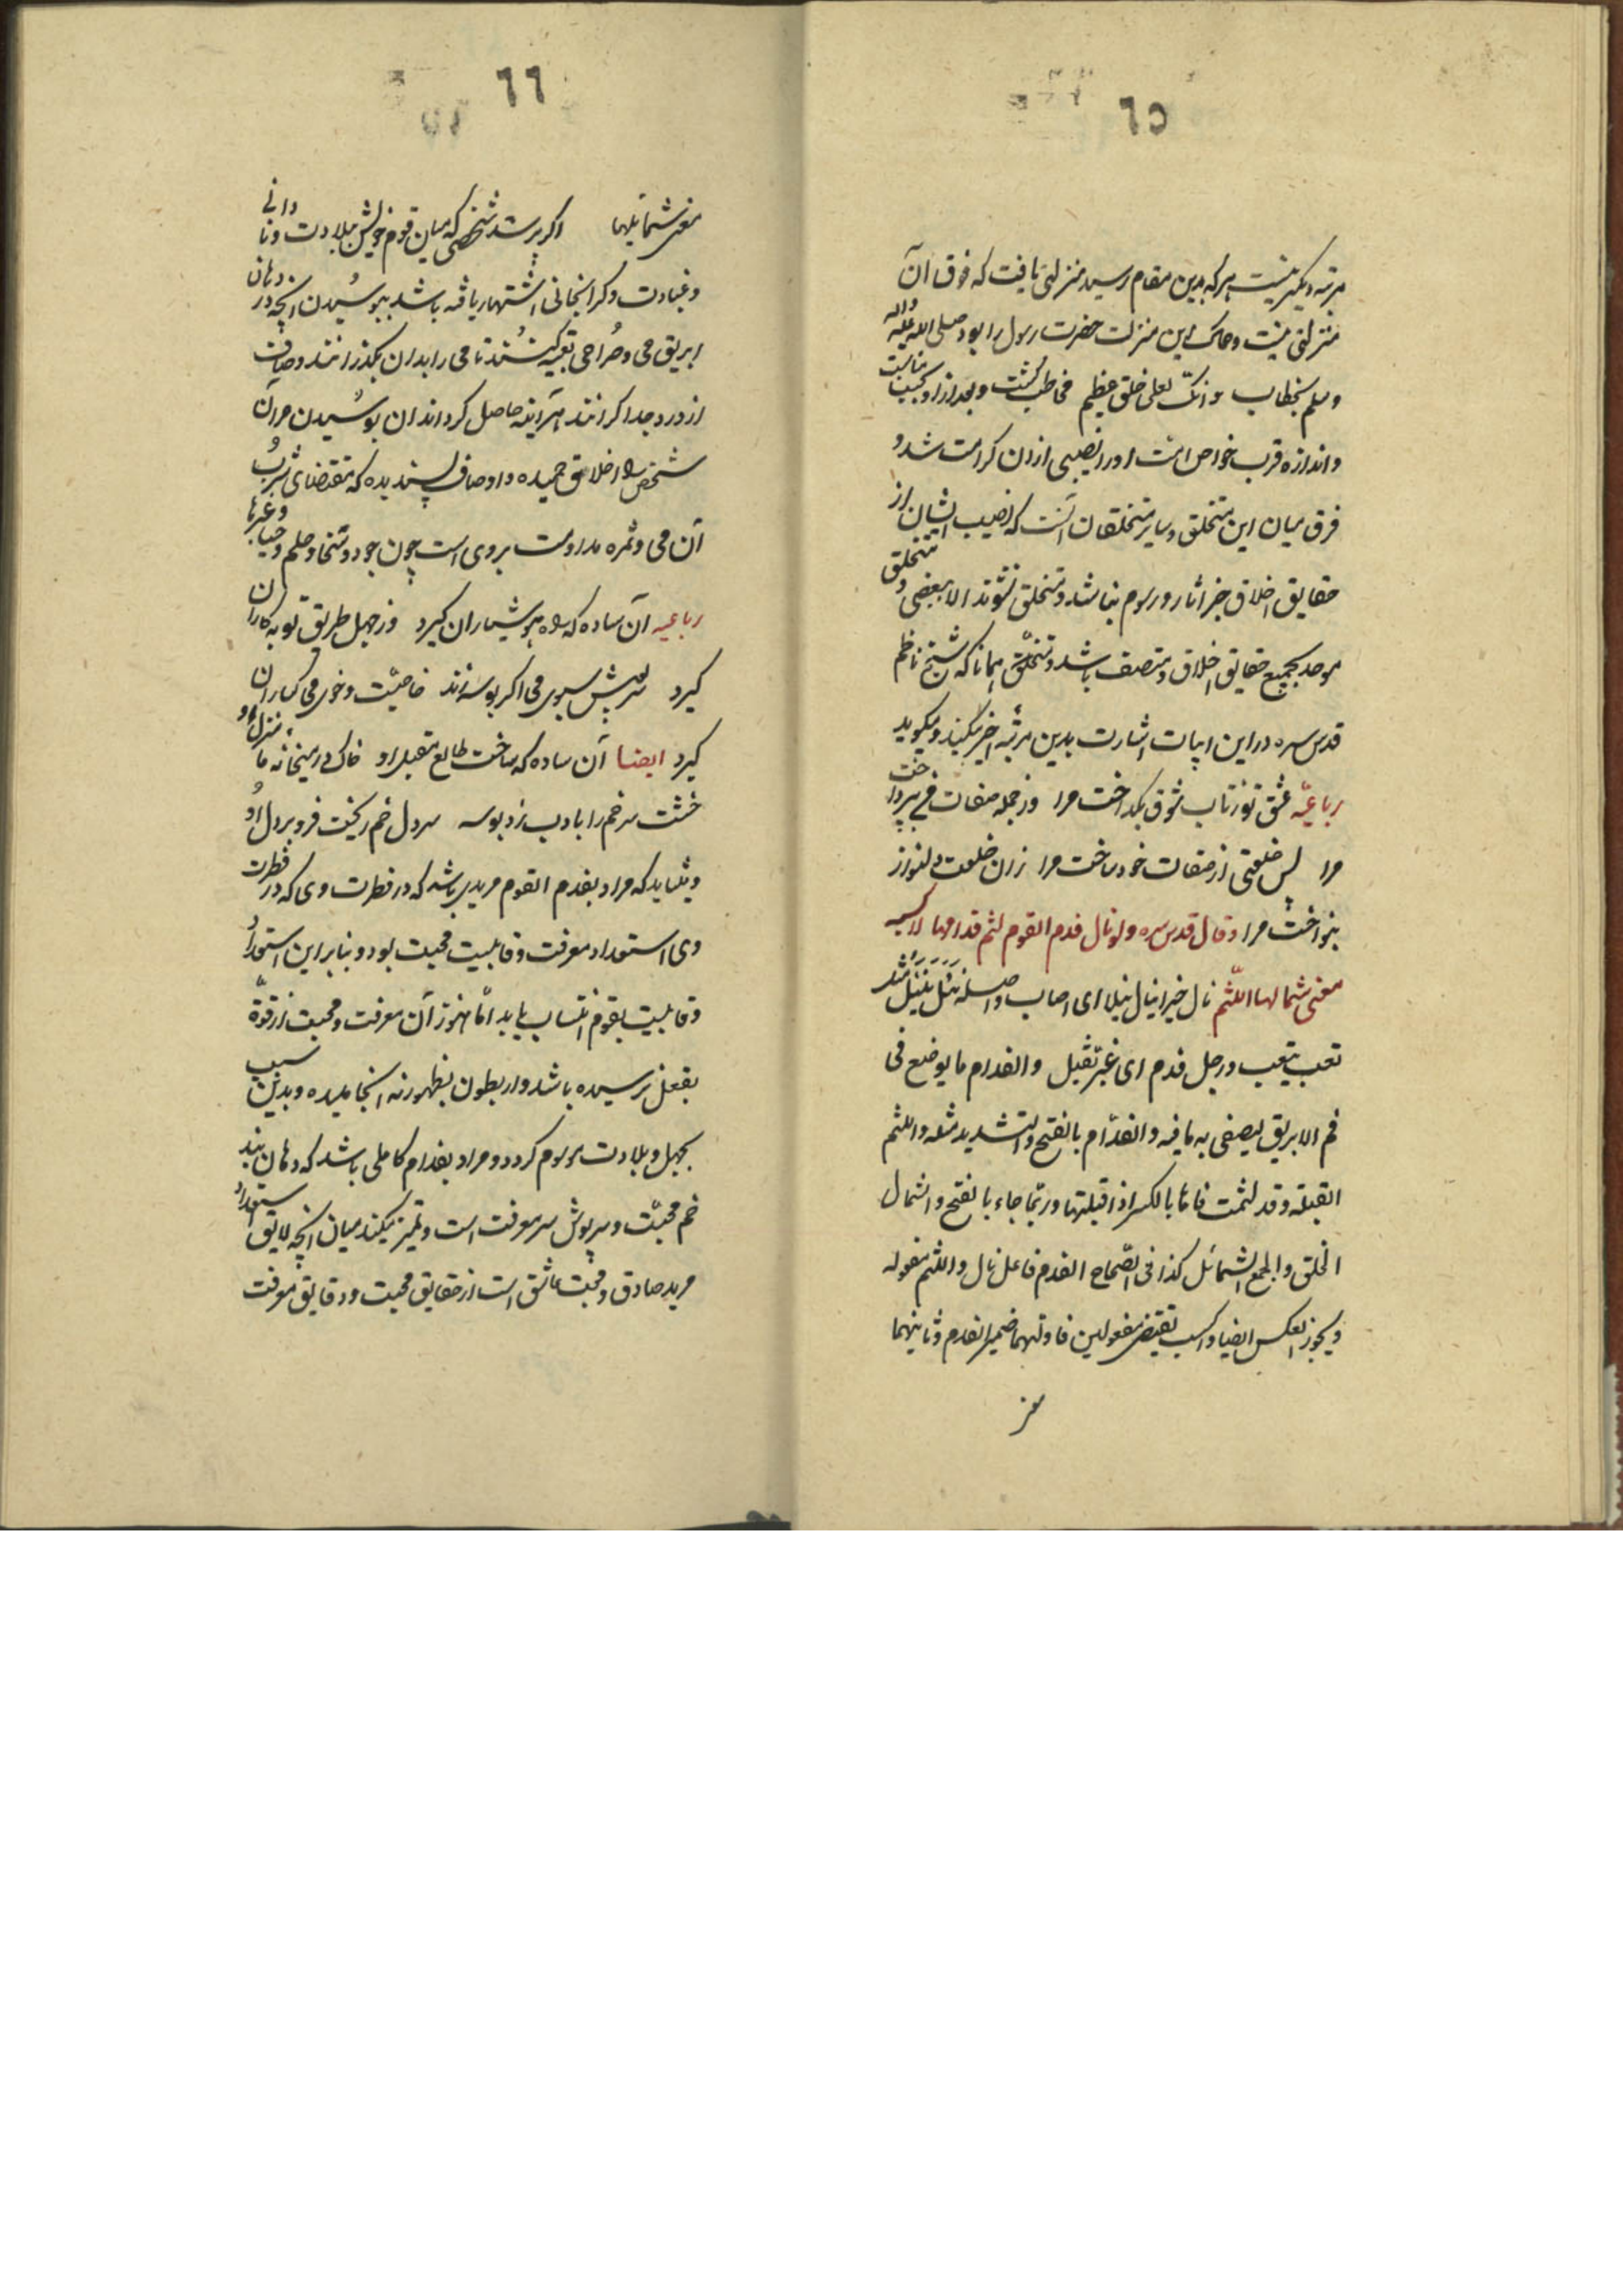 ٦٥
مرتبهٔ دیگر نیست هرکه بدین مقام رسید منزلتی یافت که فوق آن
منزلتی نیست و مالک این منزلت حضرت رسول را بود صلی الله علیه واله
وسلم بخطاب وانک لعلی خلق عظیم مخاطب کشت و بعد ازو بحسب مناسبت
و اندازه قرب خواص امت او را نصیبی ازان کرامت شد و
فرق میان این متخلق و سایر متخلقان آنست که نصیب ایشان از
حقایق اخلاق جز آثار و رسوم نباشد و متخلق نشوند الا ببعضی و متخلق
موحد بجمیع حقایق اخلاق متصف باشد و متخلق همانا که شیخ ناظم
قدس سره در این ابیات اشارت بدین مرتبه اخیر میکند و میکوید
رباعیه عشق تو ز تاب شوق بکداخت مرا وز جمله صفات من بپرداخت
مرا پس خلعتی از صفات خود ساخت مرا زان خلعت دلنواز
بنواخت مرا وقال قدس سره ولو نال فدم القوم لثم فدامها لاکسبه
معنی شمائلها اللثم نال خیرا ینال نیلا ای اصاب واصله نیل ینیل مثل
تعب یتعب ورجل فدم ای غبی ثقیل والفدام ما یوضع فی
فم الابریق لیصفی به ما فیه والفدّام بالفتح والتشدید مثله واللثم
القبلة وقد لثمت فاها بالکسر اذا قبلتها وربّما جاء بالفتح والشمال
الخلق والجمع الشمائل کذا فی الصّحاح الفدم فاعل نال واللثم مفعوله
ویجوز العکس ایضا واکسب یقتضی مفعولین فاولهما ضمیر الفدم وثانیهما
معنی
٦٦
معنی شمایلها اکر برسد شخصی که میان قوم خویش ببلادت و نادانی
و غباوت و کرانجانی اشتهار یافته باشد ببوسیدن آنچه در دهان
ابریق می و صراحی تعبیه کنند تا می را بدان بکذرانند و صافی
از درد جدا کرانند هرآینه حاصل کرداند آن بوسیدن مر آن
شخص را اخلاق حمیده و اوصاف پسندیده که مقتضای شرب
آن می و ثمره مداومت بروی است چون جود و سخا و حلم و حیا و غیرها
رباعیه آن ساده که ره هوشیاران کیرد وز جهل طریق توبه کاران
کیرد سرپوش سبوی می اکر بوسه زند خاصیّت و خوی می کساران
کیرد ایضا آن ساده که ساخت طالع مقبل او خاک در میخانه ما منزل او
خشت سر خم را بادب زد بوسه سر دل خم ریخت فرو بر دل او
و میشاید که مراد بفدم القوم مریدی باشد که در فطرت
وی استعداد معرفت و قابلیت محبت بود و بنابر این استعداد
و قابلیت بقوم انتساب یابد امّا هنوز آن معرفت و محبت از قوّة
بفعل نرسیده باشد و از بطون بظهور نه انجامیده و بدین سبب
بجهل و بلادت موسوم کردد و مراد بفدام کاملی باشد که دهان بند
خم محبّت و سرپوش سر معرفت است و تمیز میکند میان آنچه لایق استعداد
مرید صادق و محب عاشق است از حقایق محبت و دقایق معرفت